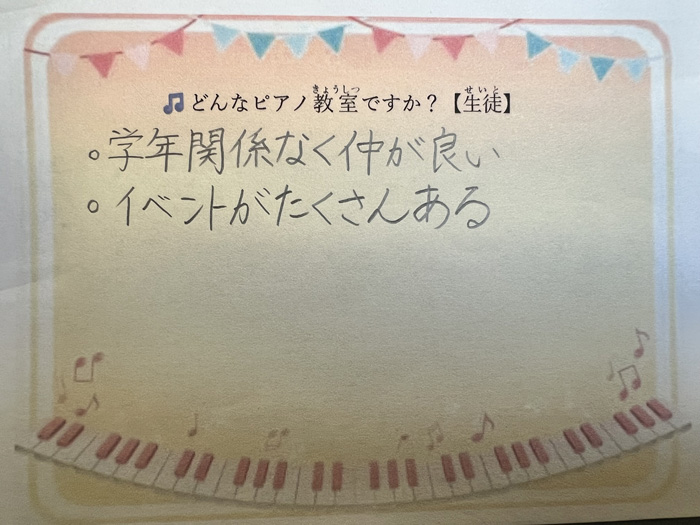 🎵どんなピアノ教室ですか？【生徒】
。学年関係なく仲が良い
。イベントがたくさんある